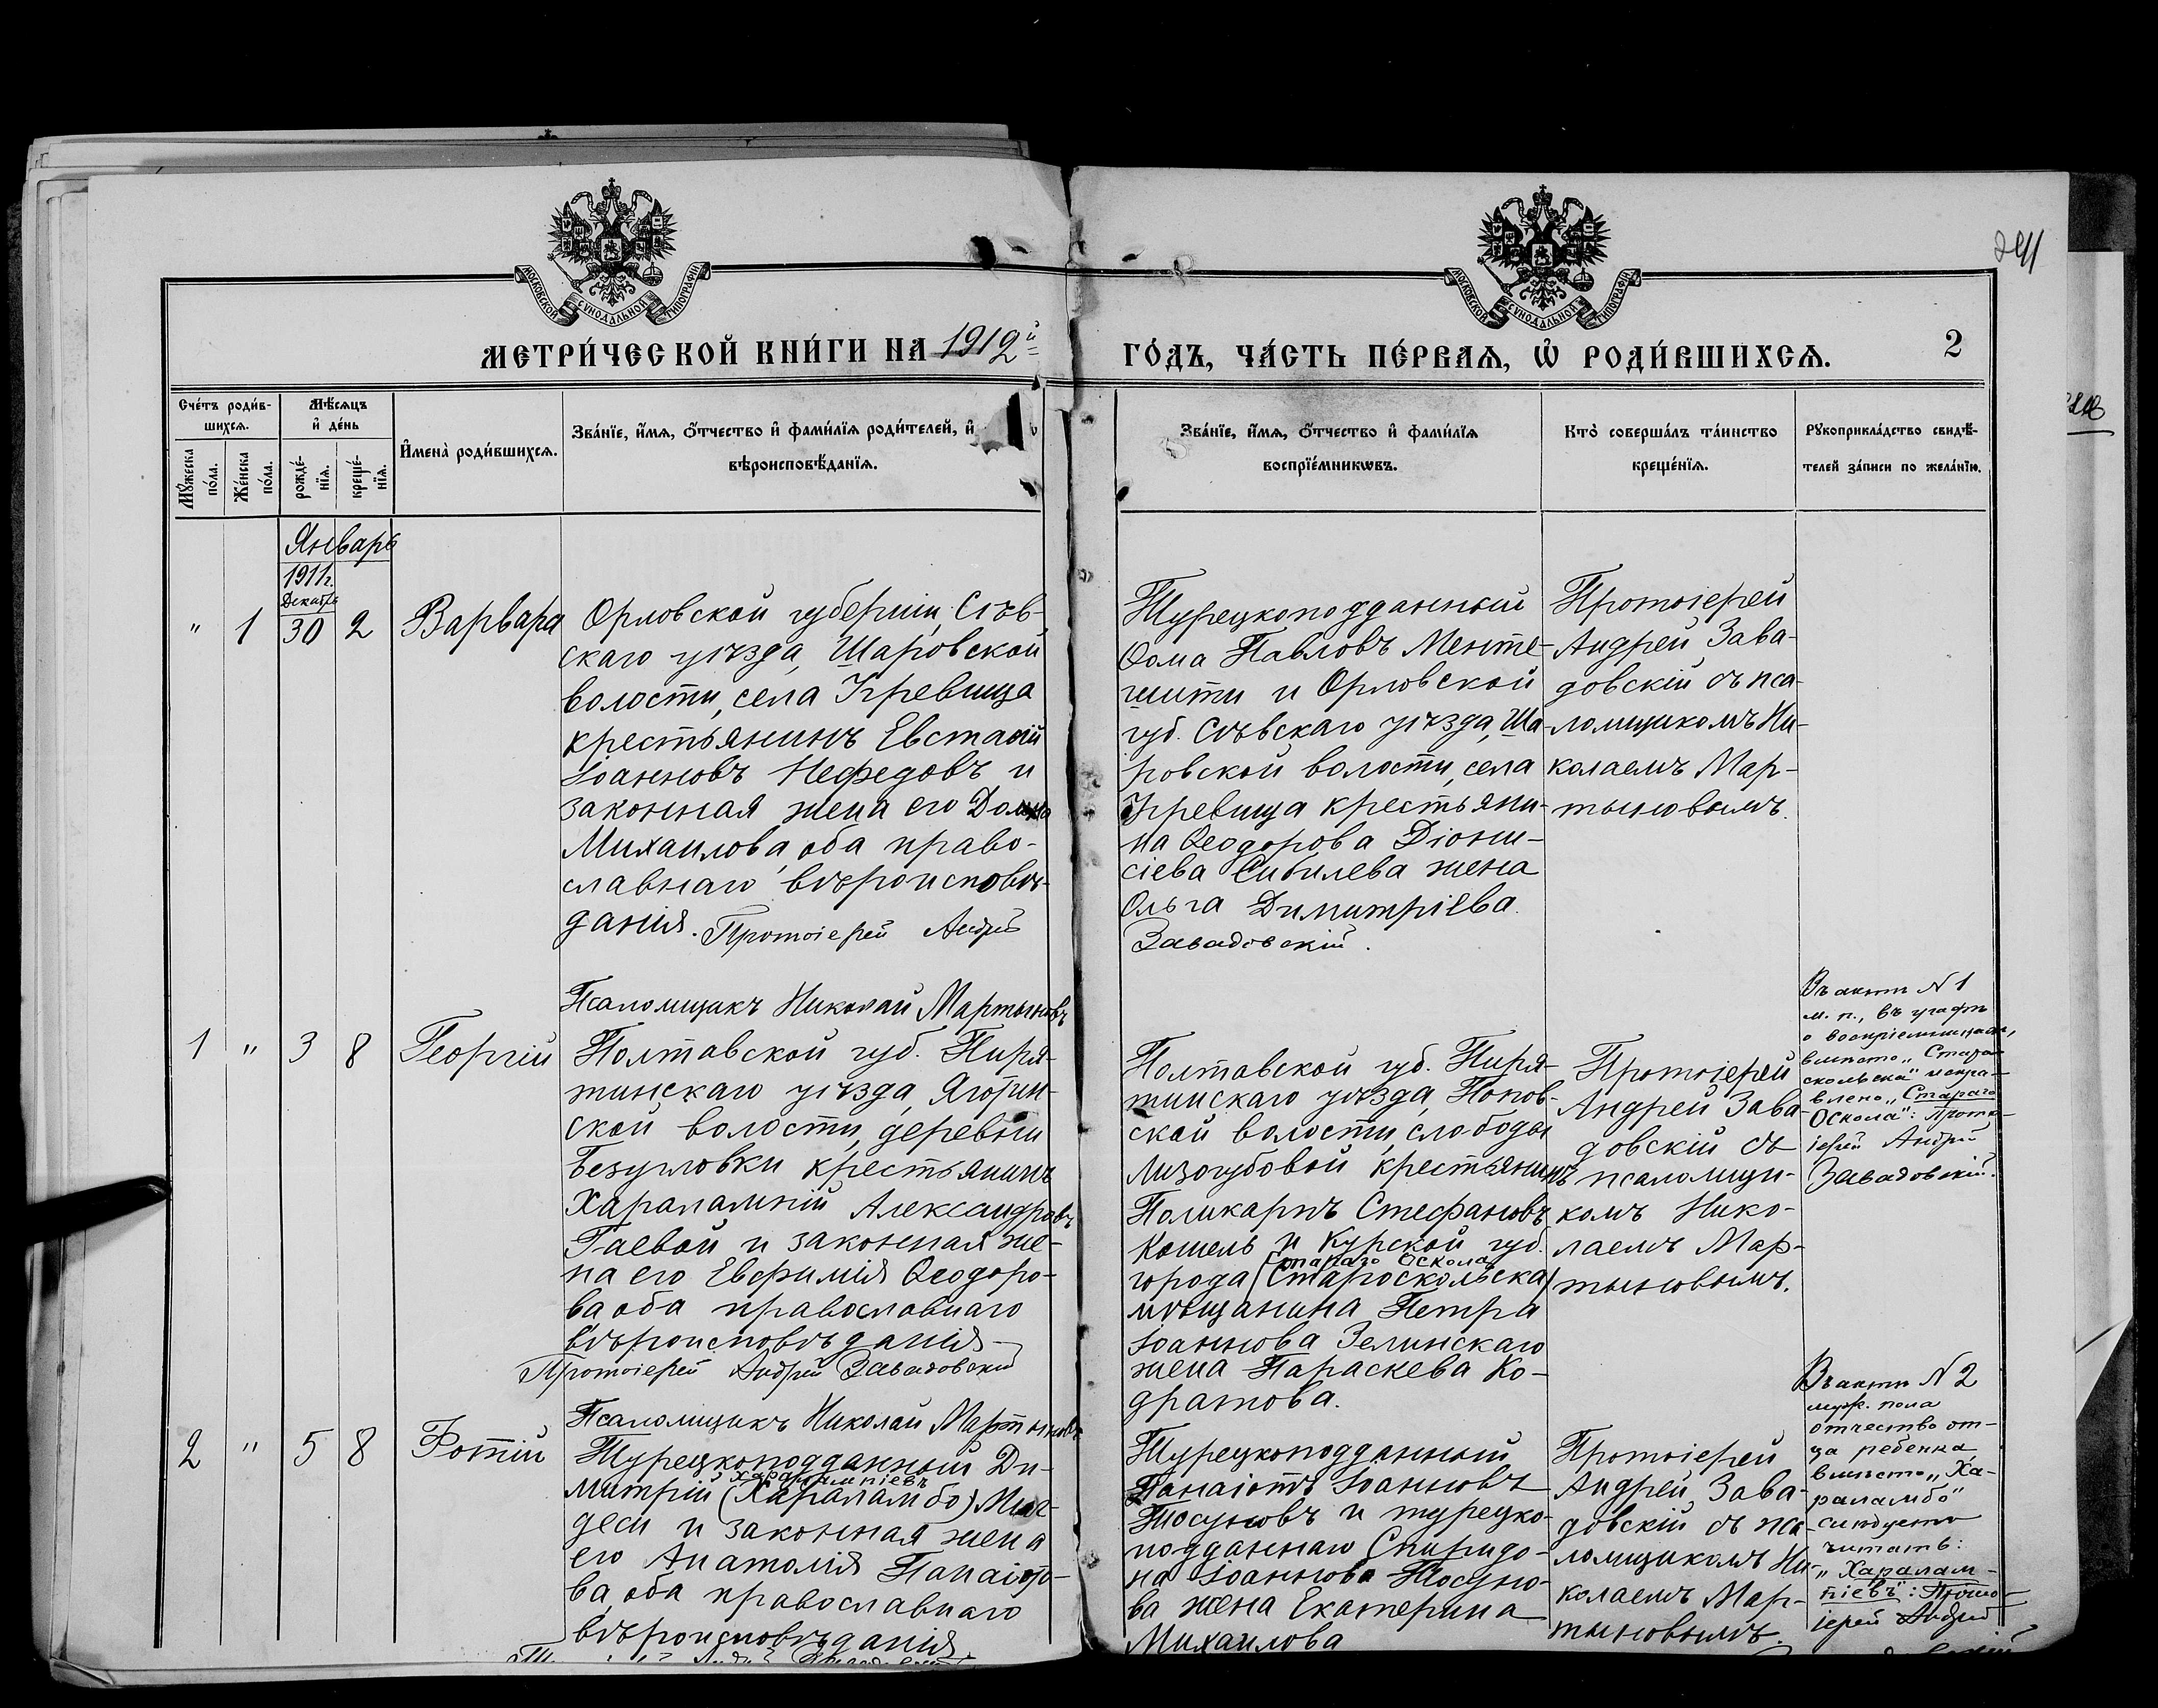 241
МОСКОВСКОЙ СУНОДАЛЬНОЙ ТИПОГРАФІИ
МОСКОВСКОЙ СУНОДАЛЬНОЙ ТИПОГРАФІИ
МЕТРИ́ЧЕСКОЙ КНИ́ГИ НА 1912й
ГО́ДЪ, ЧА́СТЬ ПЕ́РВАѦ, Ѡ҆ РОДИ́ВШИХСѦ.
2
Сче́тъ роди́в-
шихсѧ.
Мꙋ́жеска
по́ла.
Же́нска
по́ла.
Мѣ́сѧцъ
и҆ де́нь
рожде́-
нїѧ.
креще́-
нїѧ.
И҆мена̀ роди́вшихсѧ.
Зва́нїе, и҆́мѧ, ѻ҆́тчество и҆ фами́лїѧ роди́телей, и҆
вѣроисповѣ́данїѧ.
Зва́нїе, и҆́мѧ, ѻ҆́тчество и҆ фами́лїѧ
воспрїе́мникѡвъ.
Кто̀ соверша́лъ та́инство
креще́нїѧ.
Рꙋкоприкла́дство свидѣ́-
телей за́писи по жела́нїю.
Январь
1911г.
Декабрь
" 1 30 2
Варвара
Орловской губерніи, Сѣв-
скаго уѣзда, Шаровской
волости, села Игревища
крестьянинъ Евстаѳій
Іоанновъ Нефедовъ и
законная жена его Домна
Михаилова, оба право-
славнаго вѣроисповѣ-
данія. Протоіерей Андрей
Псаломщикъ Николай Мартыновъ
Турецкоподданный
Ѳома Павловъ Менте-
шити и Орловской
губ. Сѣвскаго уѣзда, Ша-
ровской волости, села
Игревища крестьяни-
на Ѳеодорова Діони-
сіева Сибилева жена
Ольга Димитріева.
Завадовскій.
Протоіерей
Андрей Зава-
довскій съ пса-
ломщикомъ Ни-
колаемъ Мар-
тыновымъ.
1 " 3 8
Георгій
Полтавской губ. Пиря-
тинскаго уѣзда, Яготин-
ской волости, деревни
Безугловки крестьянинъ
Харалампій Александровъ
Гаевой и законная же-
на его Евфимія Ѳеодоро-
ва оба православнаго
вѣроисповѣданія
Протоіерей Андрей Завадовскій
Псаломщикъ Николай Мартыновъ
Полтавской губ. Пиря-
тинскаго уѣзда, Попов-
ской волости, слободы
Лизогубовой крестьянинъ
Поликарпъ Стефановъ
Кошель и Курской губ.
Стараго Оскола
города (Старооскольска)
мѣщанина Петра
Іоаннова Зелинскаго
жена Параскева Ко-
дратова.
Протоіерей
Андрей Зава-
довскій съ
псаломщи-
комъ Нико-
лаемъ Мар-
тыновымъ.
Въ актѣ N 1
м. п., въ графѣ
о воспріемникахъ,
вмѣсто „Старо-
скольска" испра-
влено „Стараго
Оскола": Прото-
іерей Андрей
Завадовскій.
2 " 5 8
Фотій
Турецкоподданный Ди-
Харалампіевъ
митрій (Хараламбо)
деси и законная жена
его Анатолія Панаіото-
ва, оба православнаго
вѣроисповѣданія
Турецкоподданный
Панаіотъ Іоанновъ
Тосуновъ и турецко-
подданнаго Спиридо-
на Іоаннова Тосуно-
ва жена Екатерина
Михаилова
Протоіерей
Андрей Зава-
довскій съ пса-
ломщикомъ Ни-
колаемъ Мар-
тыновымъ.
Въ актѣ N 2
муж. пола
отчество от-
ца ребенка
вмѣсто „Ха-
раламбо"
слѣдуетъ
читать:
„Харалам-
піевъ": Прото-
іерей Андрей